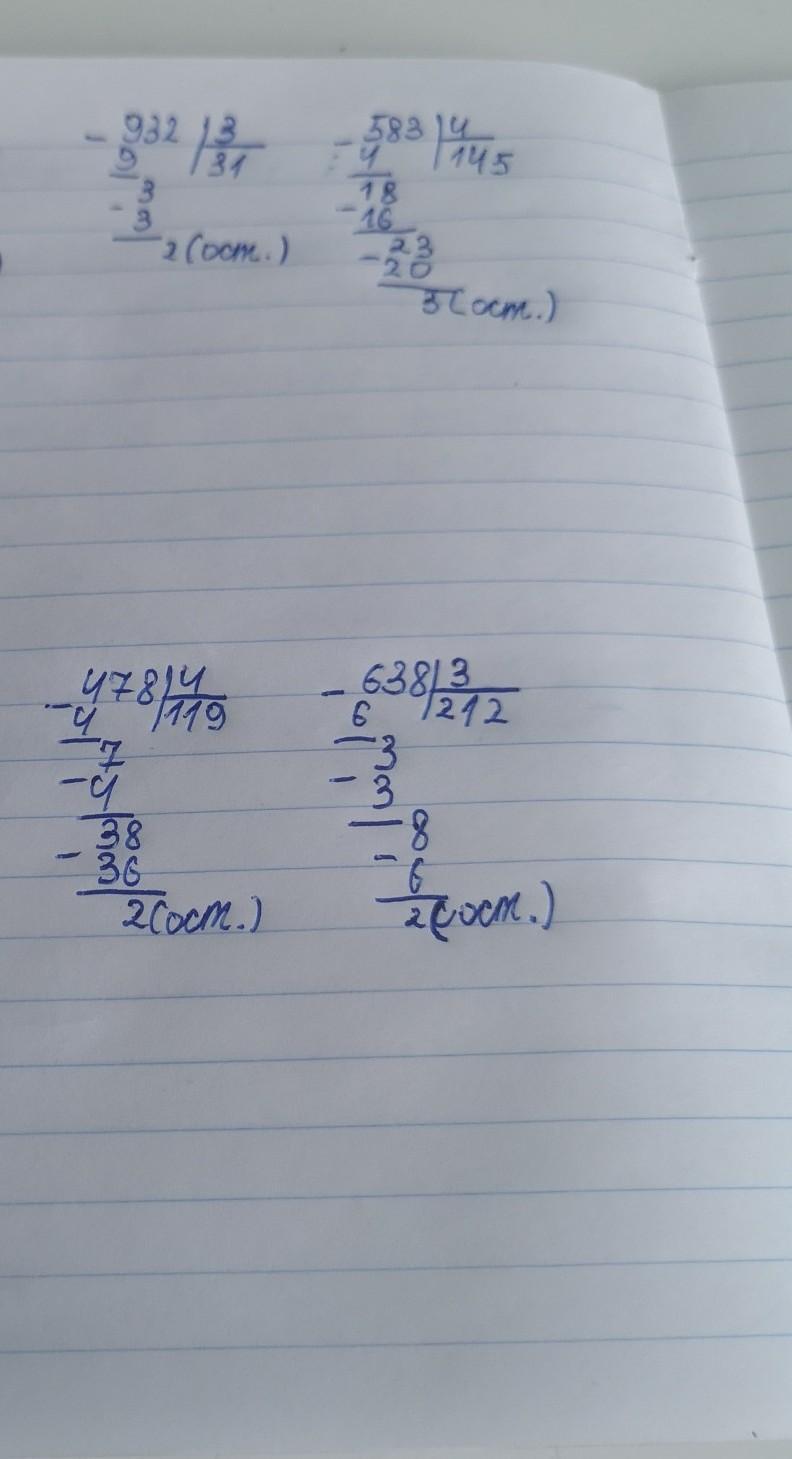 - 932 | 3
9 | 31
3
- 3
2 (ост.)
- 583 | 4
4 | 145
18
- 16
- 23
20
3 (ост.)
- 478 | 4
4 | 119
7
- 4
38
- 36
2 (ост.)
- 638 | 3
6 | 212
3
- 3
8
- 6
2 (ост.)